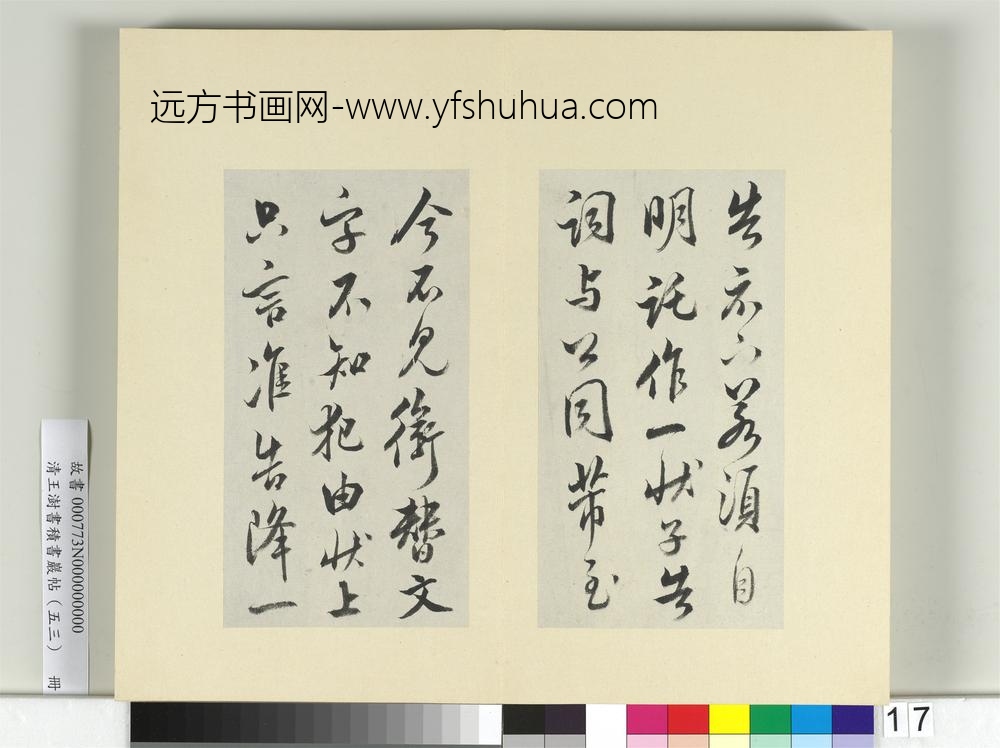 远方书画网-www.yfshuhua.com
告示下若須自
明託作一状子告
詞与公同帶至
今不見銜替文
字不知犯由状上
只言准告降一
故書 000773N000000000
清王澍書積書巖帖（五三） 冊
17